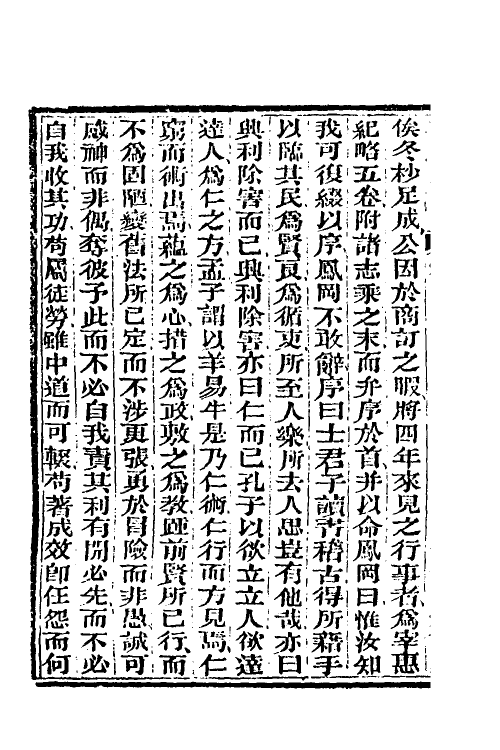 俟冬杪足成公因於商訂之暇將四年來見之行事者爲宰惠
紀略五卷附諸志乘之末而弁序於首并以命鳳岡曰惟汝知
我可復綴以序鳳岡不敢辭序曰士君子讀書稽古得所藉手
以臨其民爲賢良爲循吏所至人樂所去人思豈有他哉亦曰
興利除害而已興利除害亦曰仁而已孔子以欲立立人欲達
達人爲仁之方孟子謂以羊易牛是乃仁術仁行而方見焉仁
窮而術出焉蘊之爲心措之爲政敷之爲教踵前賢所已行而
不爲固陋變舊法所已定而不涉更張勇於冒險而非愚誠可
感神而非偶奪彼予此而不必自我責其利有開必先而不必
自我收其功苟屬徒勞雖中道而可輟苟著成效卽任怨而何